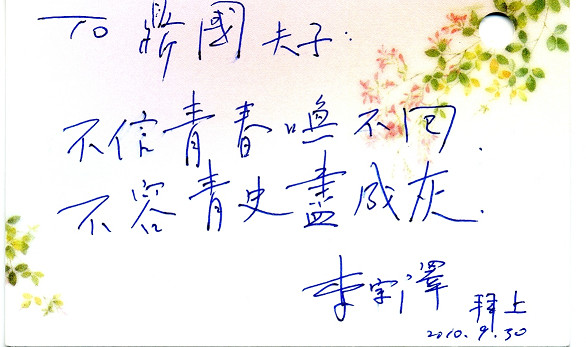 To 國夫子:
不信青春喚不回.
不容青史盡成灰.
李宗澤
拜上
2010.9.30